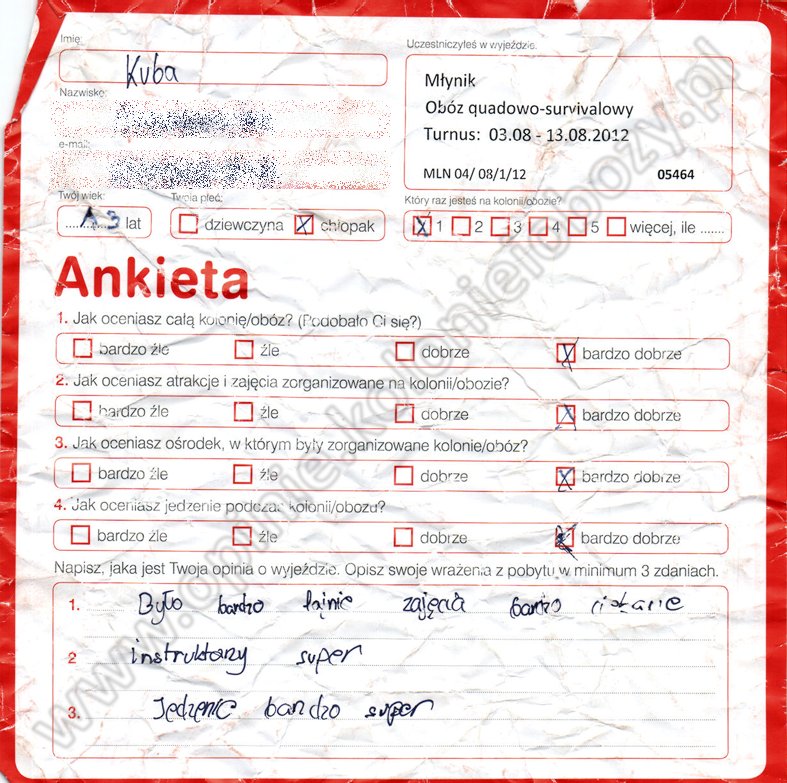 Imię:
Uczestniczyłeś w wyjeździe.
Kuba
Młynik
Nazwisko:
Obóz quadowo-survivalowy
Turnus: 03.08 - 13.08.2012
e-mail:
MLN 04/ 08/1/12 05464
Twój wiek: Twoja płeć: Który raz jesteś na kolonii/obozie?
13 lat dziewczyna X chłopak X 1 2 3 4 5 więcej, ile .......
Ankieta
1. Jak oceniasz całą kolonię/obóz? (Podobało Ci się?)
bardzo źle źle dobrze X bardzo dobrze
2. Jak oceniasz atrakcje i zajęcia zorganizowane na kolonii/obozie?
bardzo źle źle dobrze X bardzo dobrze
3. Jak oceniasz ośrodek, w którym były zorganizowane kolonie/obóz?
bardzo źle źle dobrze X bardzo dobrze
4. Jak oceniasz jedzenie podczas kolonii/obozu?
bardzo źle źle dobrze X bardzo dobrze
Napisz, jaka jest Twoja opinia o wyjeździe. Opisz swoje wrażenia z pobytu w minimum 3 zdaniach.
1. Było bardzo fajnie zajęcia bardzo
2 instruktorzy super
3. Jedzenie bardzo super
www.opinie.kolonieiobozy.pl